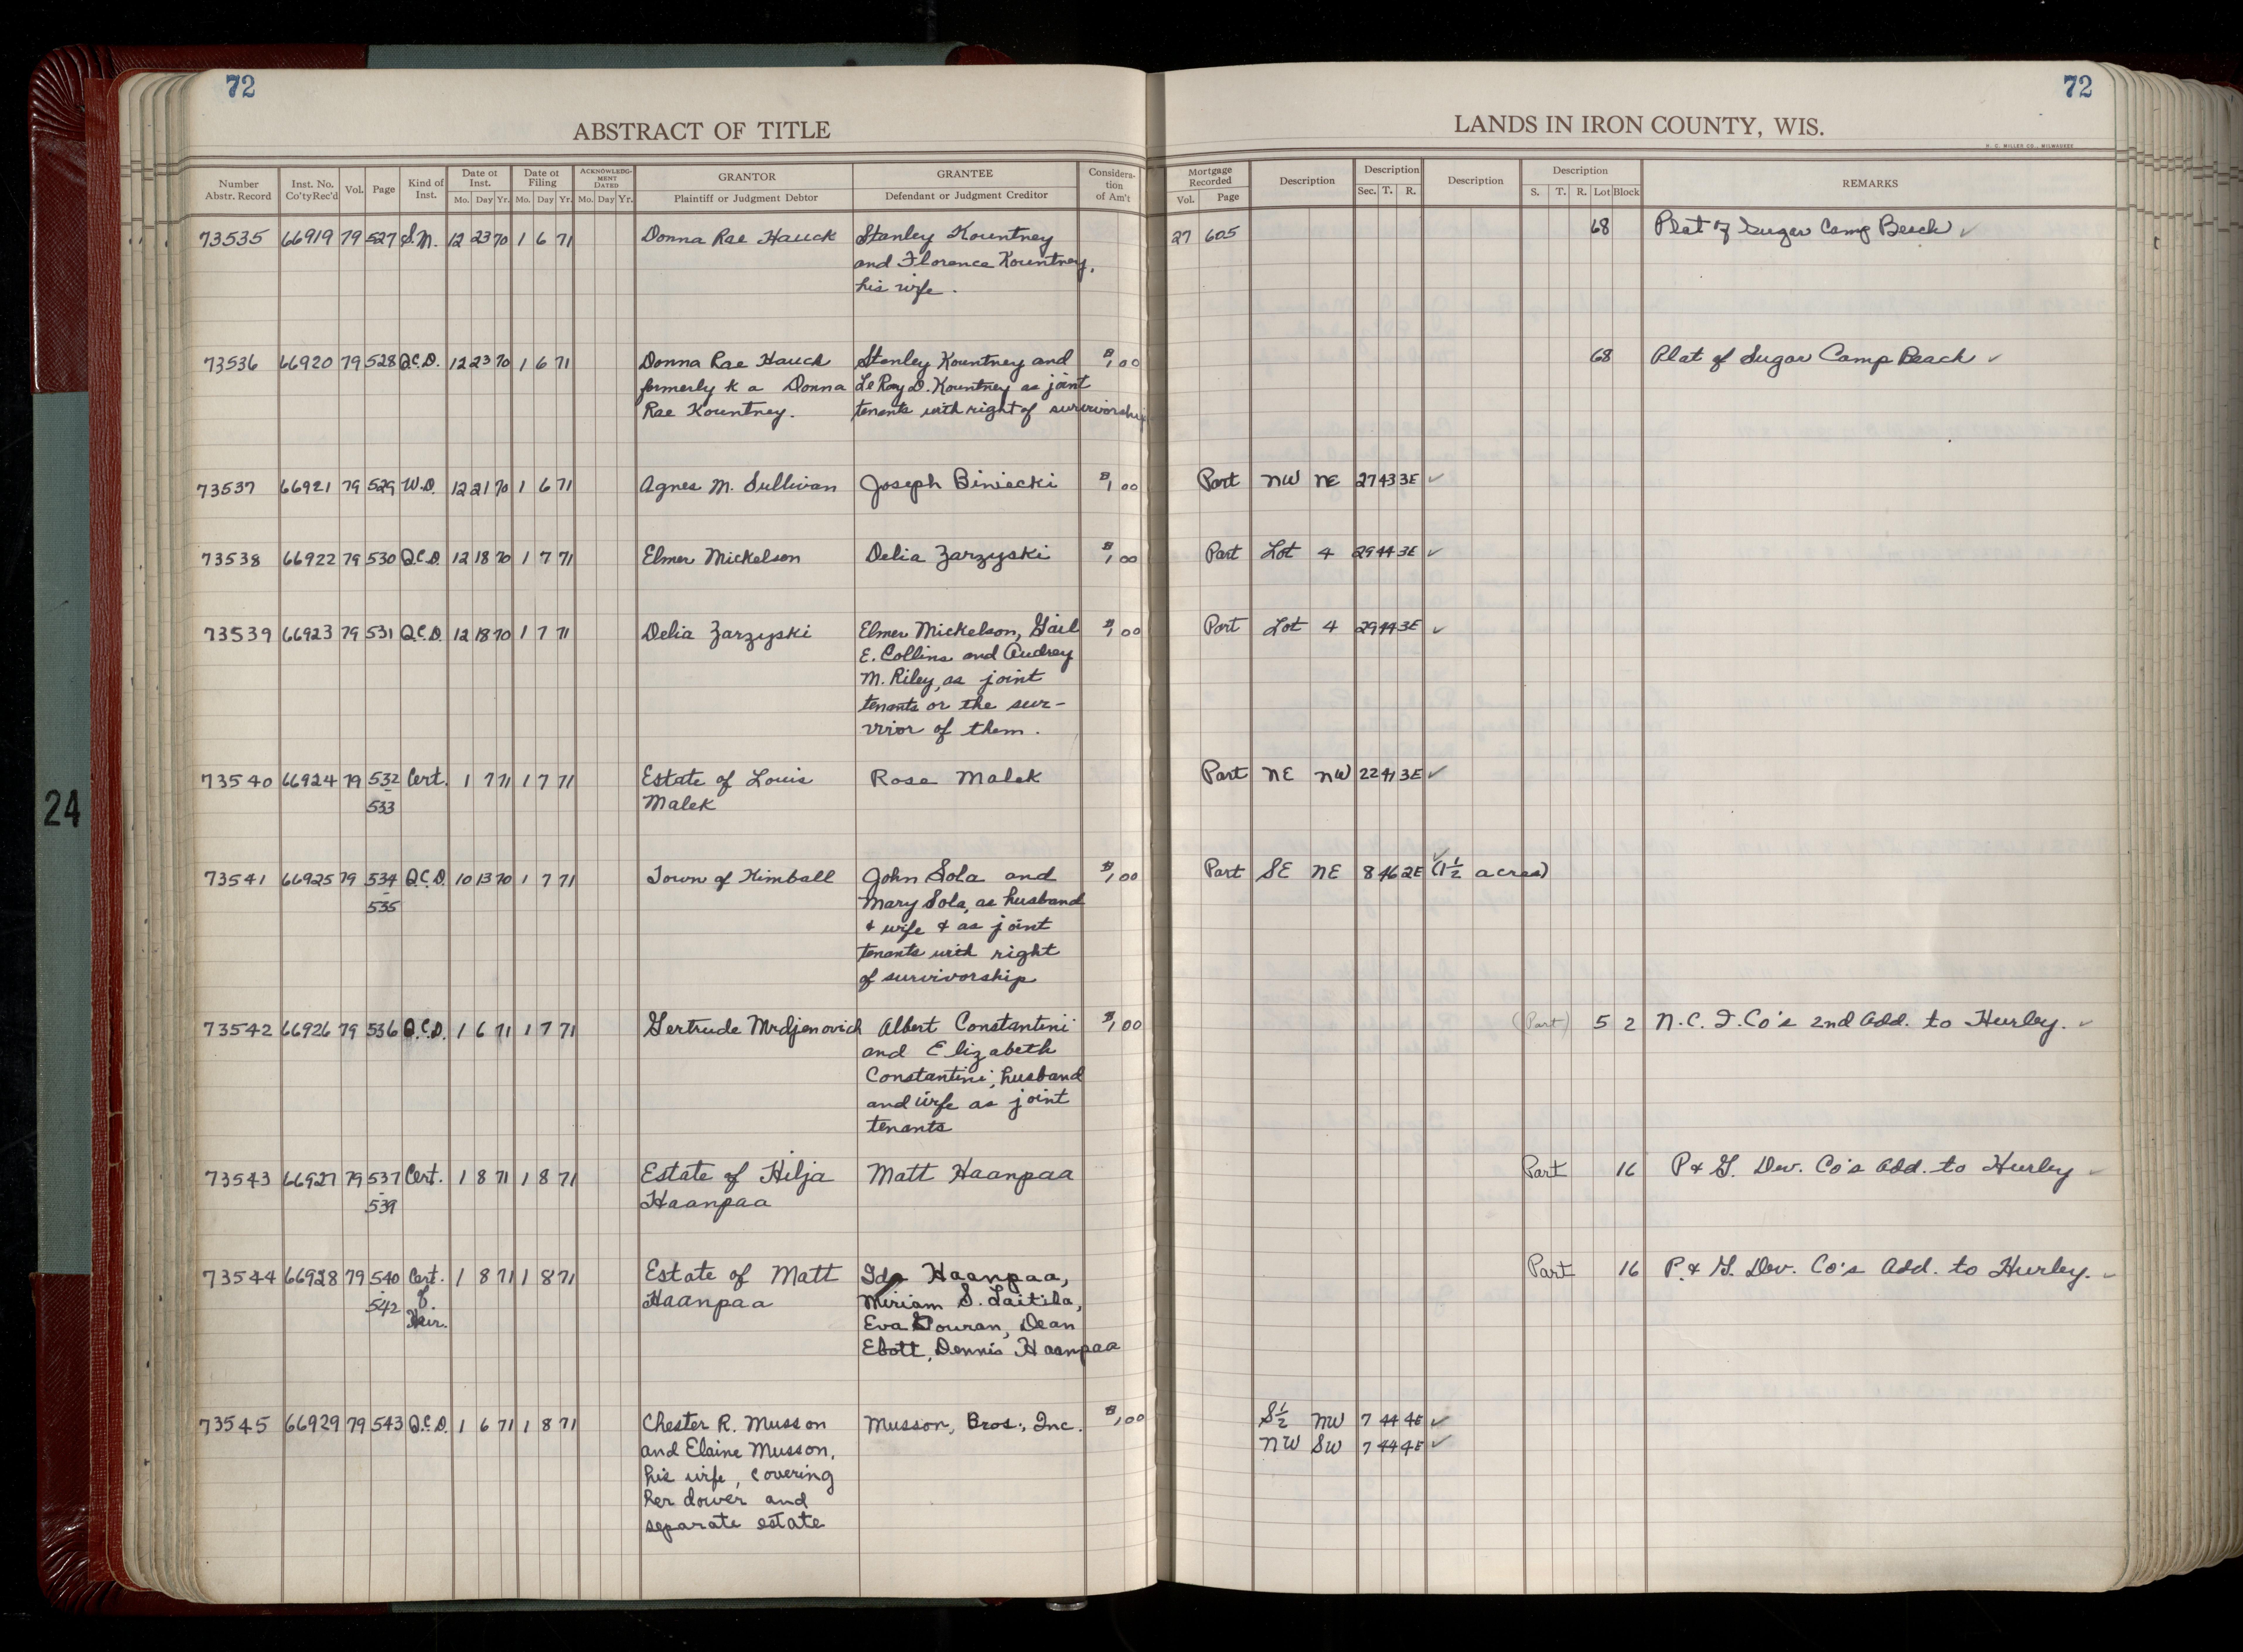 72
72
ABSTRACT OF TITLE
LANDS IN IRON COUNTY, WIS.
H. C. MILLER CO., MILWAUKEE
Number Abstr. Record Inst. No. Co'ty Rec'd Vol. Page Kind of Inst. Date of Inst. Mo. Day Yr. Date of Filing Mo. Day Yr. ACKNOWLEDGMENT DATED Mo. Day Yr. GRANTOR Plaintiff or Judgment Debtor GRANTEE Defendant or Judgment Creditor Consideration of Am't Mortgage Recorded Vol. Page Description Description Sec. T. R. Description Description S. T. R. Lot Block REMARKS
73535 66919 79 527 S.M. 12 23 70 1 6 71 Donna Rae Hauck Stanley Kountney 27 605 68 Plat of Sugar Camp Beach ✓
and Florence Kountney,
his wife.
73536 66920 79 528 Q.C.D. 12 23 70 1 6 71 Donna Rae Hauck Stanley Kountney and $1,00 68 Plat of Sugar Camp Beach ✓
formerly k a Donna LeRoy D. Kountney as joint
Rae Kountney. tenants with right of survivorship
73537 66921 79 529 W.D. 12 21 70 1 6 71 Agnes M. Sullivan Joseph Biniecki $1,00 Part NW NE 27 43 3E ✓
73538 66922 79 530 Q.C.D. 12 18 70 1 7 71 Elmer Mickelson Delia Zarzyski $1,00 Part Lot 4 29 44 3E ✓
73539 66923 79 531 Q.C.D. 12 18 70 1 7 71 Delia Zarzyski Elmer Mickelson, Gail $1,00 Part Lot 4 29 44 3E ✓
E. Collins and Audrey
M. Riley, as joint
tenants or the sur-
vivor of them.
73540 66924 79 532 Cert. 1 7 71 1 7 71 Estate of Louis Rose Malek Part NE NW 22 41 3E ✓
- 533 Malek
73541 66925 79 534 Q.C.D. 10 13 70 1 7 71 Town of Kimball John Sola and $1,00 Part SE NE 8 46 2E ✓ (1 1/2 acres)
- 535 Mary Sola, as husband
& wife & as joint
tenants with right
of survivorship
73542 66926 79 536 Q.C.D. 1 6 71 1 7 71 Gertrude Mrdjenovich Albert Constantini $1,00 (Part) 5 2 N.C. I. Co's 2nd Add. to Hurley. ✓
and Elizabeth
Constantini, husband
and wife as joint
tenants
73543 66927 79 537 Cert. 1 8 71 1 8 71 Estate of Hilja Matt Haanpaa Part 16 P. & G. Dev. Co's Add. to Hurley ✓
- 539 Haanpaa
73544 66928 79 540 Cert. 1 8 71 1 8 71 Estate of Matt Ida Haanpaa, Part 16 P. & G. Dev. Co's Add. to Hurley. ✓
- 542 of Haanpaa Miriam S. Laitila,
Heir. Eva Gouran, Dean
Ebott, Dennis Haanpaa
73545 66929 79 543 Q.C.D. 1 6 71 1 8 71 Chester R. Musson Musson, Bros., Inc. $1,00 S 1/2 NW 7 44 4E ✓
and Elaine Musson, NW SW 7 44 4E ✓
his wife, covering
her dower and
separate estate
24